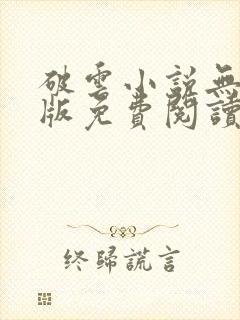 破雲小說無
版免費閱讀
终歸謊言